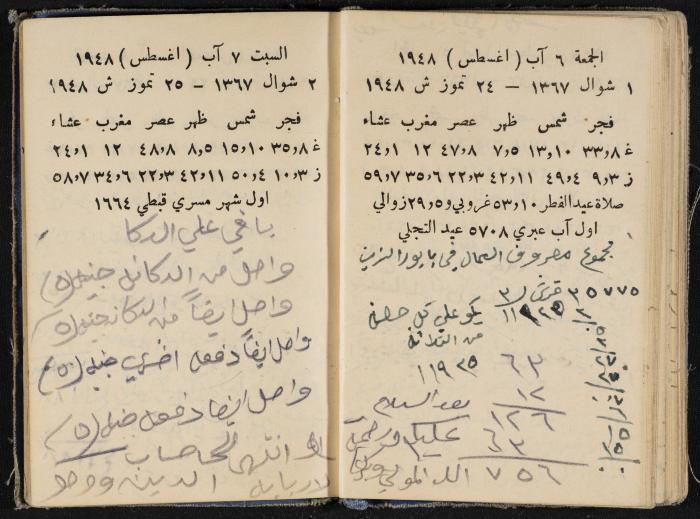 الجمعة ٦ آب ( اغسطس ) ١٩٤٨
١ شوال ١٣٦٧ – ٢٤ تموز ش ١٩٤٨
فجر شمس ظهر عصر مغرب عشاء
غ ٨٫٣٣ ١٠٫١٣ ٥٫٧ ٨٫٤٧ ١٢ ١٫٢٤
ز ٣٫٩ ٤٫٤٩ ١١٫٤٢ ٣٫٢٢ ٦٫٣٥ ٧٫٥٩
صلاة عيد الفطر ١٠٫٥٣ غروبي و ٥٫٢٩ زوالي
اول آب عبري ٥٧٠٨ عيد التجلي
مجموع مصروف العمال في بابور الزيت
٣٥٧٧٥ قرش
يكو علي كل حصه
من الثلاثة
١١٩٢٥
٦٣
١٢
١٢٦
٦٣
٧٥٦
بعد السلام
عليكم
السبت ٧ آب ( اغسطس ) ١٩٤٨
٢ شوال ١٣٦٧ – ٢٥ تموز ش ١٩٤٨
فجر شمس ظهر عصر مغرب عشاء
غ ٨٫٣٥ ١٠٫١٥ ٥٫٨ ٨٫٤٨ ١٢ ١٫٢٤
ز ٣٫١٠ ٤٫٥٠ ١١٫٤٢ ٣٫٢٢ ٦٫٣٤ ٧٫٥٨
اول شهر مسري قبطي ١٦٦٤
باقي علي الدكا
واصل من الدكانه جنيه (٥)
واصل ايضاً من الدكانه جنيه (٥)
واصل ايضاً دفعه اخري جنيه (٥)
واصل ايضا دفعه جنيه (٥)
انتهى الحساب